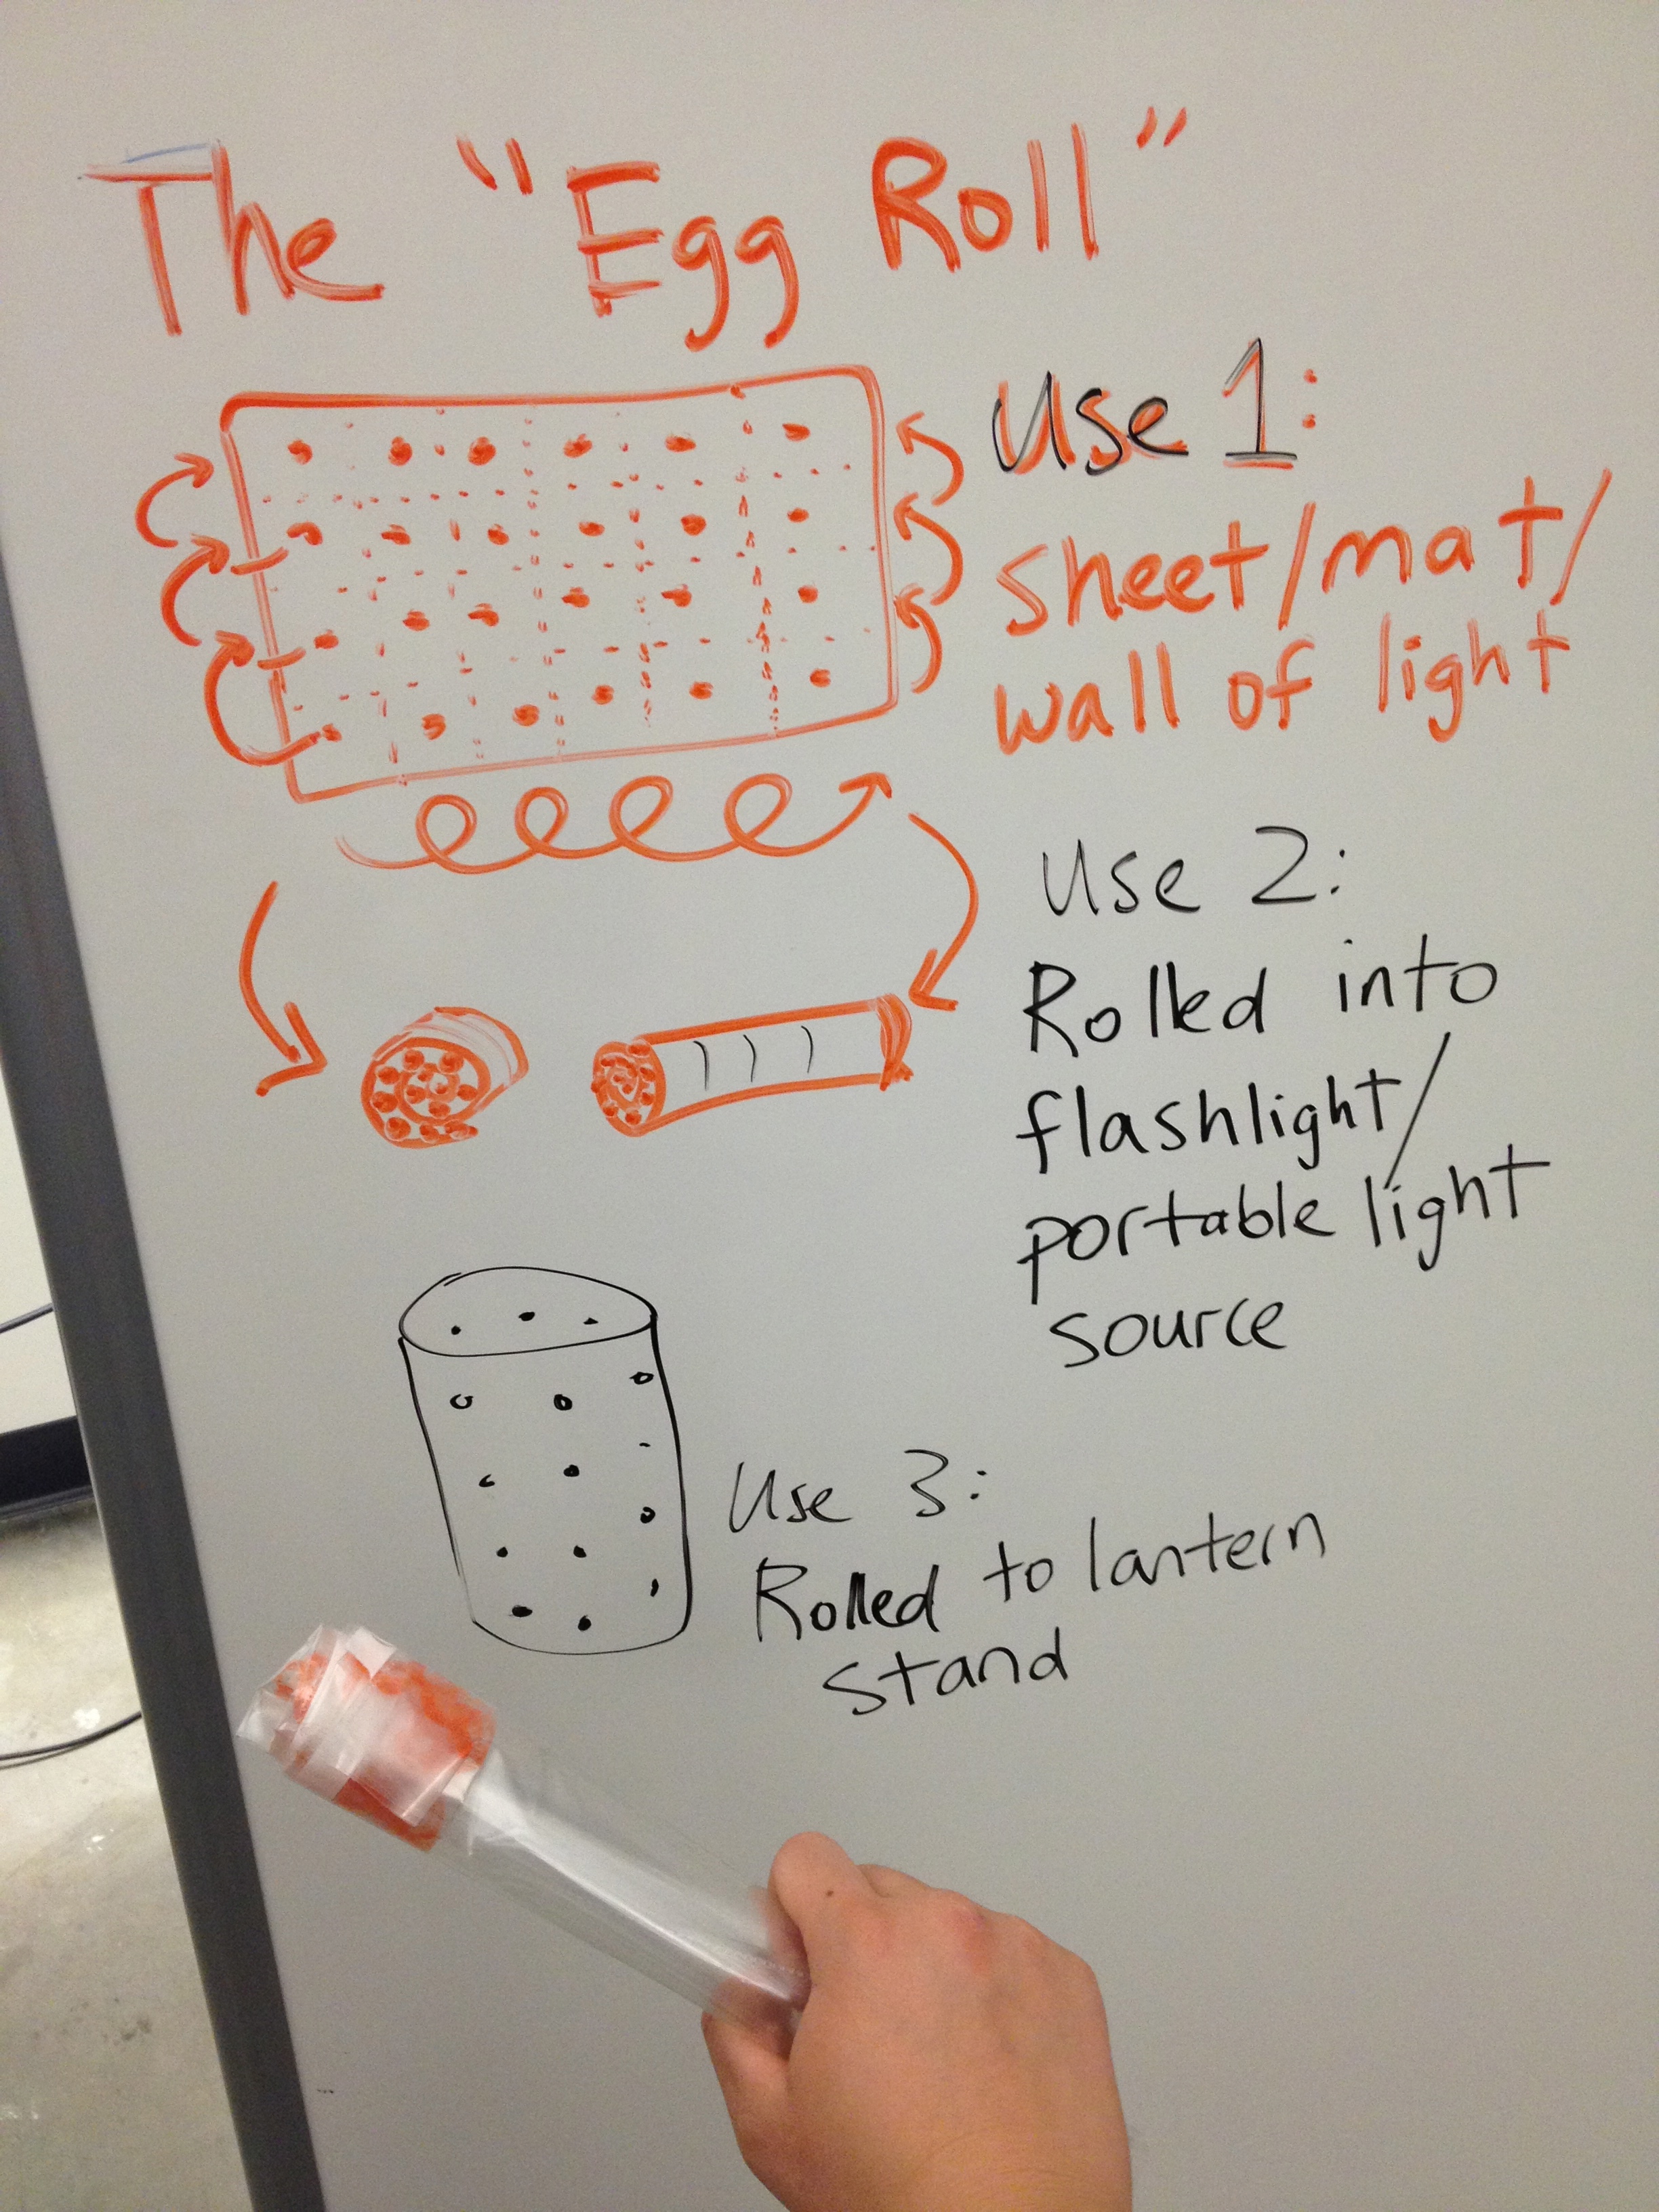 The "Egg Roll"
Use 1:
sheet/mat/
wall of light
Use 2:
Rolled into
flashlight/
portable light
source
Use 3:
Rolled to lantern
stand